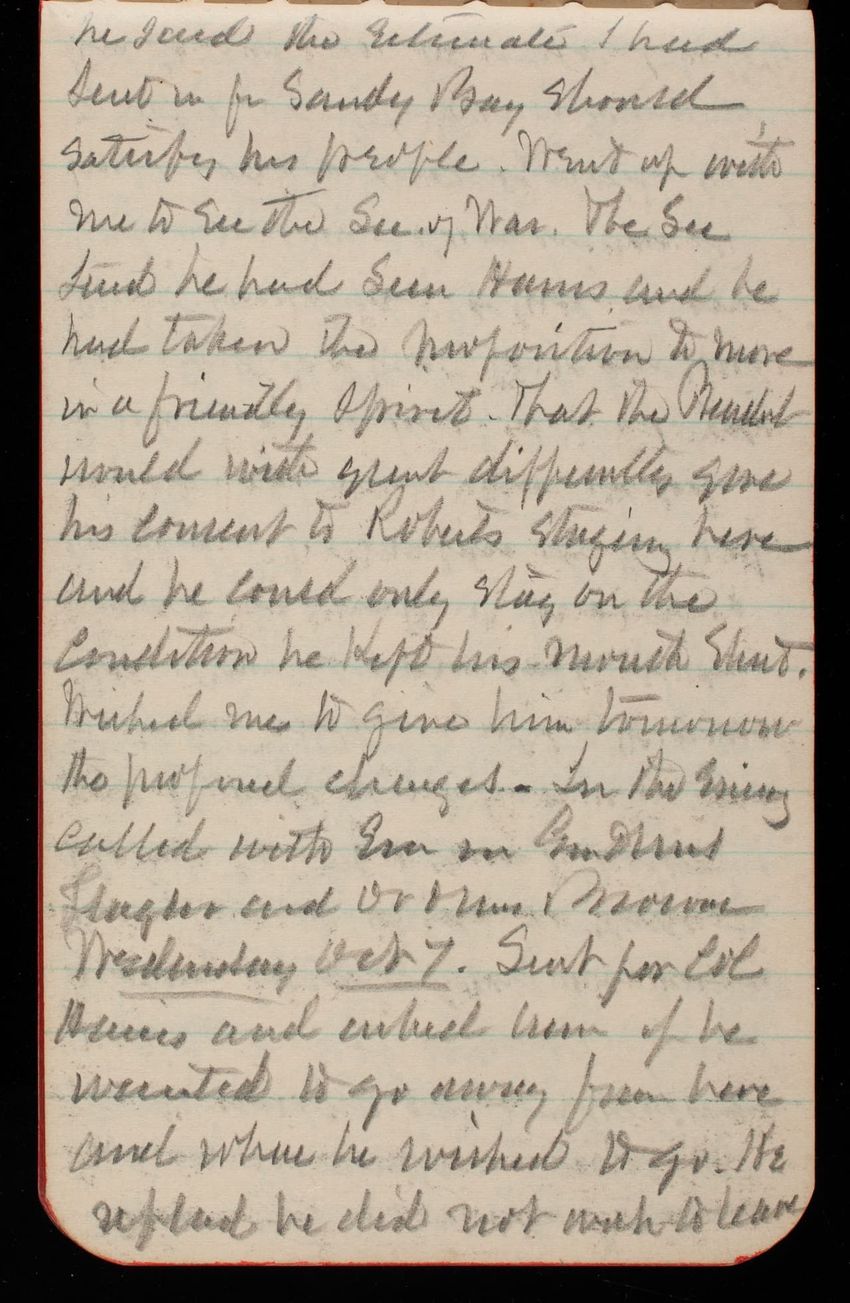 he said the Estimate I had
sent in for Sandy Bay should
satisfy his people. Went up with
me to see the Sec. of War. The Sec
said he had seen Hains and he
had taken the proposition to move
in a friendly spirit. That the Presdnt
would with great difficulty give
his consent to Roberts staying here
and he could only stay on the
condition he kept his mouth shut.
Wished me to give him tomorrow
the proposed changes - In the Evening
called with Em on Genl & Mrs
and Dr & Mrs
Wednesday Oct 7. Sent for Col
Hains and asked him if he
wanted to go away from here
and where he wished to go. He
replied he did not wish to leave